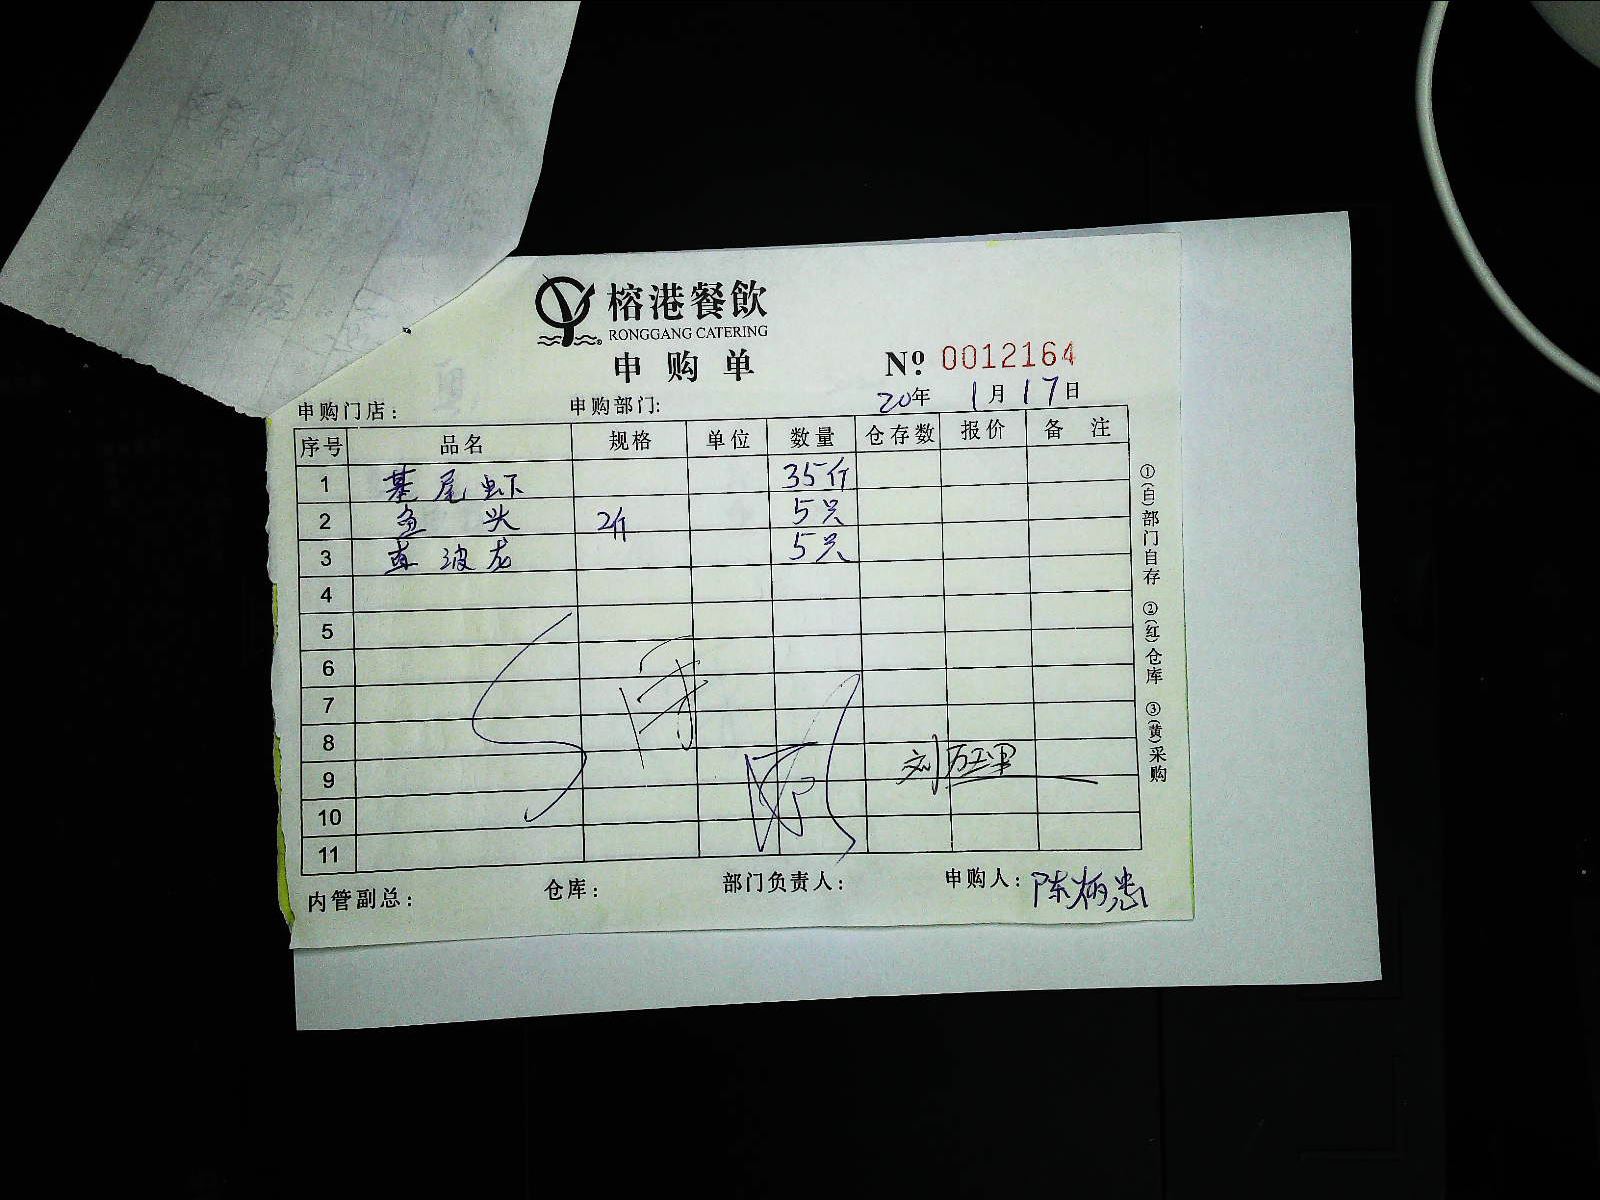 榕港餐飲
RONGGANG CATERING
申购单 Nº 0012164
申购门店： 申购部门: 20年 1月17日
序号 品名 规格 单位 数量 仓存数 报价 备注
1 基尾虾 35斤
2 鱼头 2斤 5只
3 东波龙 5只
4
5
6
7
8
9 刘
10
11
内管副总： 仓库： 部门负责人： 申购人：陈炳忠
①(白)部门自存 ②(红)仓库 ③(黄)采购